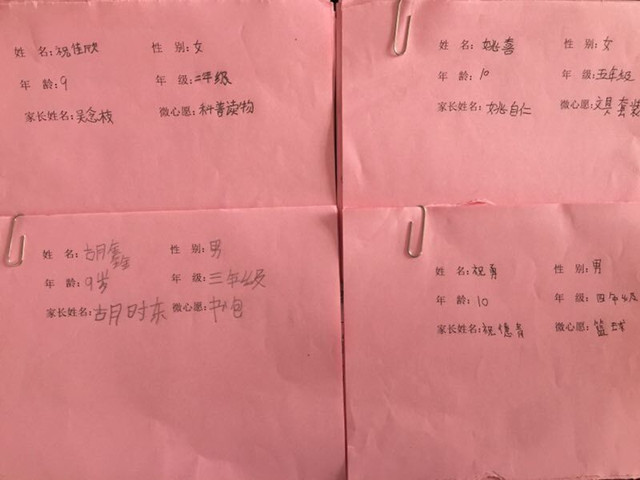 姓 名:祝佳欣 性 别:女
年 龄:9 年 级:二年级
家长姓名:吴念枝 微心愿:科普读物
姓 名:姚喜 性 别:女
年 龄:10 年 级:五年级
家长姓名:姚自仁 微心愿:文具套装
姓 名:胡鑫 性 别:男
年 龄:9岁 年 级:三年级
家长姓名:胡时东 微心愿:书包
姓 名:祝勇 性 别:男
年 龄:10 年 级:四年级
家长姓名:祝德青 微心愿:篮球